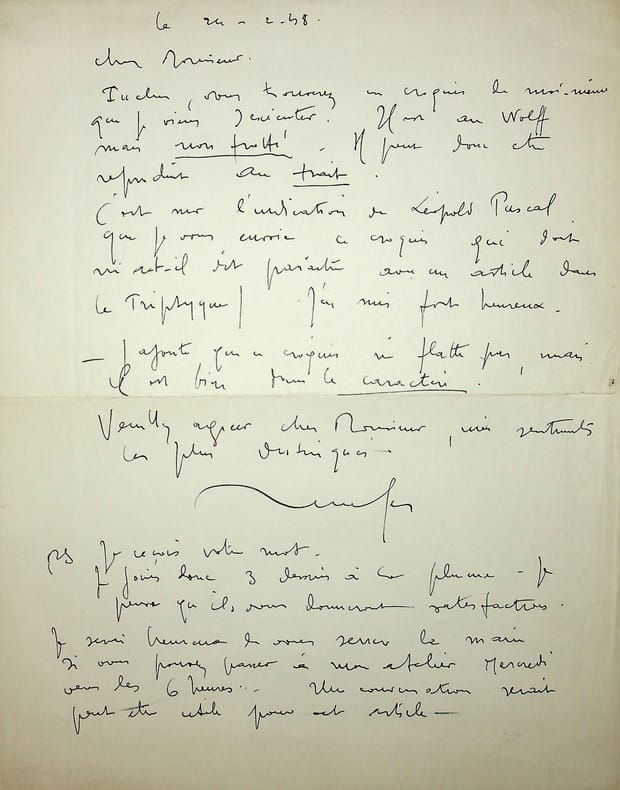 le 24 - 2. 48.
cher Monsieur.
Inclus, vous trouverez un croquis de moi-même
que je viens d'exécuter. Il est au Wolff
mais non frotté. Il peut donc être
reproduit au trait.
C'est sur l'indication de Léopold Pascal
que je vous envoie ce croquis qui doit
m'a-t-il dit paraître avec un article dans
le Triptyque! J'en suis fort heureux.
— J'ajoute que ce croquis ne flatte pas, mais
il est bien dans le caractère.
Veuillez agréer cher Monsieur, mes sentiments
les plus distingués —
PS Je reçois votre mot.
Je joins donc 3 dessins à la plume - Je
pense qu'ils vous donneront satisfaction.
Je serai heureux de vous serrer la main
si vous pouvez passer à mon atelier Mercredi
vers les 6 heures... Une conversation serait
peut être utile pour cet article —